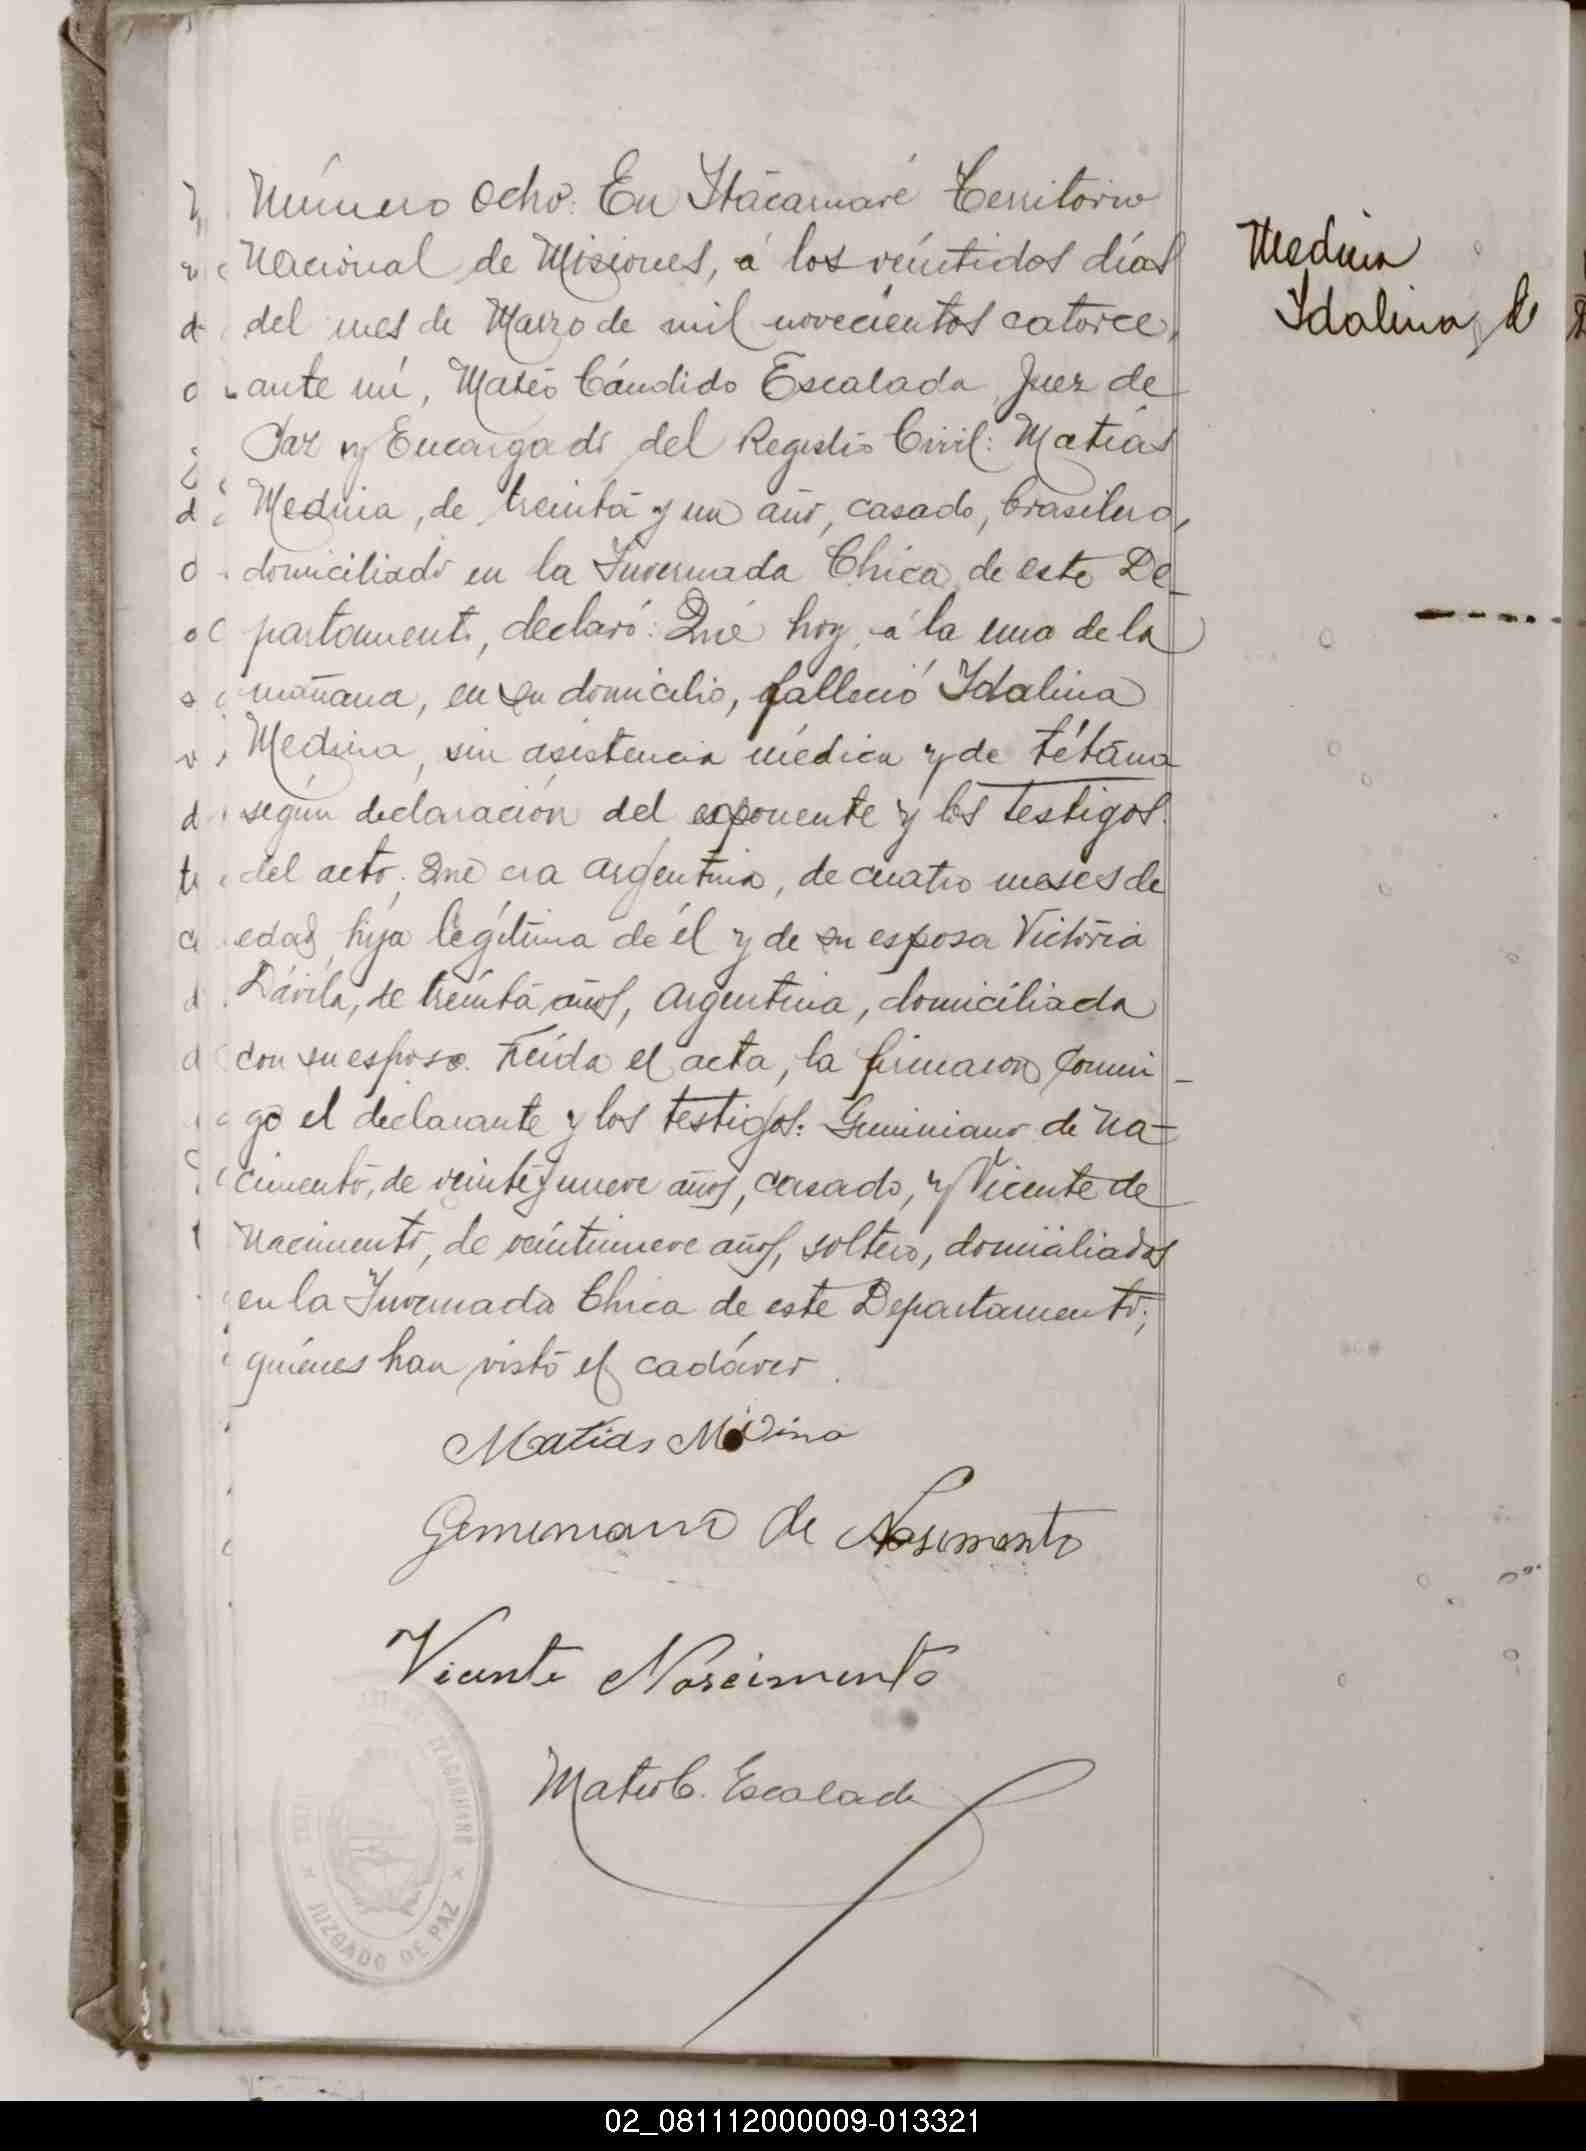 Número Ocho: En Itácaruaré Territorio
Nacional de Misiones, á los veíntidos días
del mes de Marzo de mil novecientos catorce,
ante mí, Mateo Cándido Escalada, Juez de
Paz y Encargado del Registro Civil: Matías
Medina, de treinta y un año, casado, brasilero,
domiciliado en la Invernada Chica, de este De-
partamento, declaró: Que hoy, á la una de la
mañana, en su domicilio, falleció Idalina
Medina, sin asistencia médica y de tétano
según declaración del exponente y los testigos
del acto. Que era argentina, de cuatro meses de
edad, hija legítima de él y de su esposa Victoria
Dávila, de treinta años, argentina, domiciliada
con su esposo. Leída el acta, la firmaron conmi-
go el declarante y los testigos: Geminiano de Na-
cimento, de veinte y nueve años, casado, y Vicente de
Nacimento, de veintinueve años, soltero, domiciliados
en la Invernada Chica de este Departamento;
quiénes han visto el cadáver.
Medina
Idalina,
Matias Medina
Gemeniano de Nasimento
Vicente Nascimento
Mateo C. Escalada
JUZGADO DE PAZ
ITACARUARÉ
02_081112000009-013321